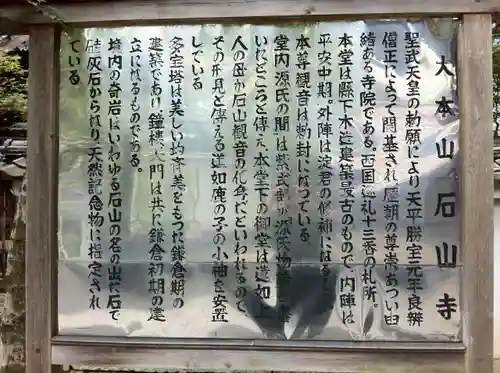 大本山石山寺
聖武天皇の勅願により天平勝宝元年良辨
僧正によって開基され歴朝の尊崇あつい由
緒ある寺院である。西国巡礼十三番の札所。
本堂は県下木造建築最古のもので、内陣は
平安中期。外陣は淀君の修補になるし
本尊観音は勅封になっている。
堂内「源氏の間」は紫式部が源氏物語を
いたところと伝え、本堂下の御堂は蓮如上
人の母が石山観音の化身だといわれるので、
その形見と伝える蓮如鹿の子の小袖を安置
している。
多宝塔は美しい均斉美をもつた鎌倉期の
建築であり、鐘楼、大門は共に鎌倉初期の建
立になるものである。
境内の奇岩はいわゆる石山の名の出た石で
硅灰石からなり、天然記念物に指定されて
いる